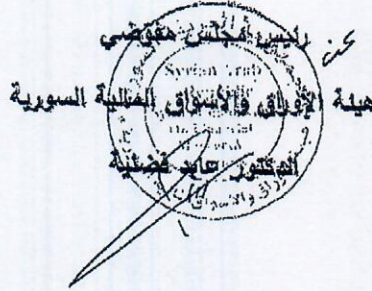 عن رئيس مجلس مفوضي
هيئة الأوراق والأسواق المالية السورية
الدكتور عابد فضلية
Syrian Arab